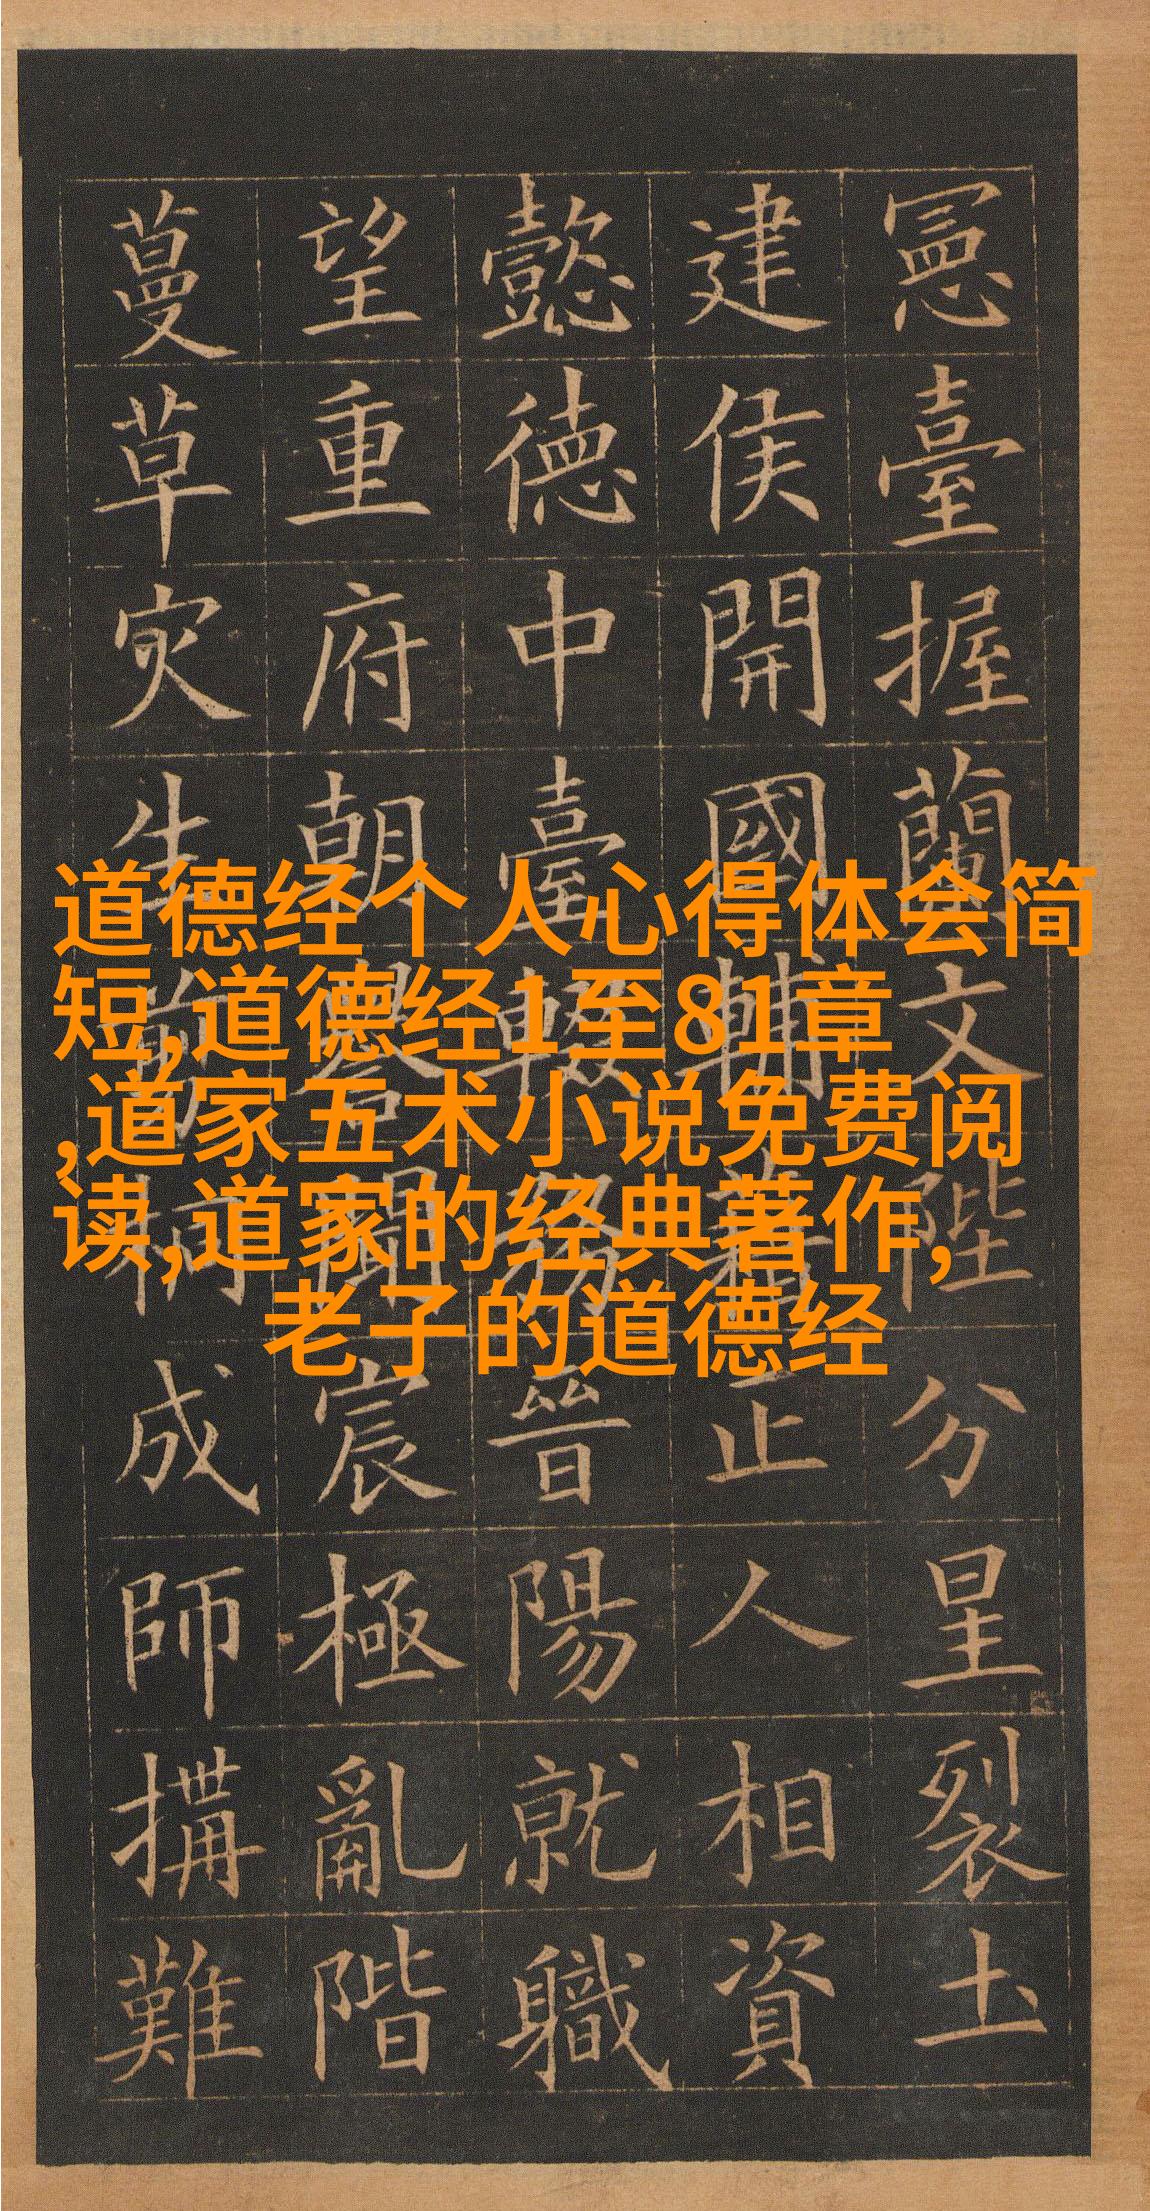 道德经个人心得体会简
短,道德经1至81章
,道家五术小说免费阅
读,道家的经典著作,
老子的道德经
憲臺握蘭文陛分星裂土
建侯開國輔藉正人相資
懿德中臺輟務晉陽就職
望重府朝譽聞宸極亂階
蔓草灾生桐成師搆難